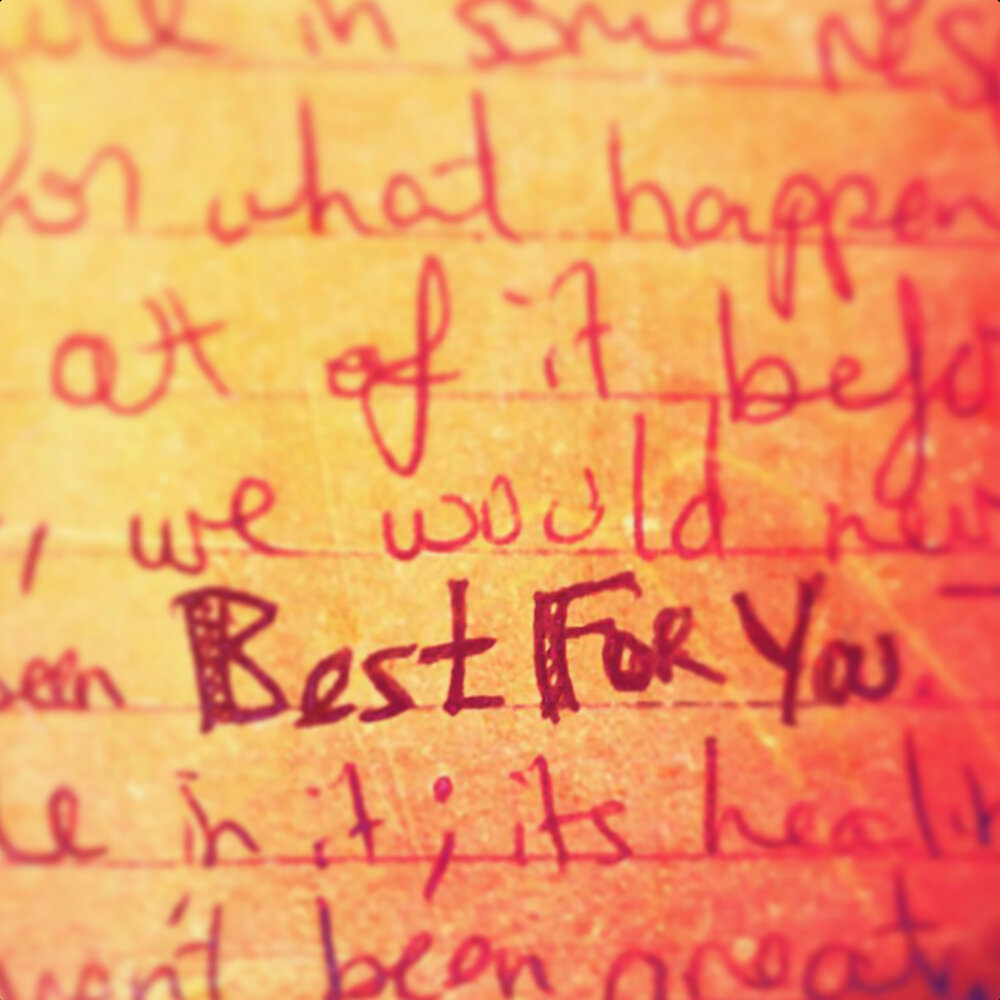 in some res
for what happen
att of it befo
, we would nev
been Best For You
le in it; its health
won't been great,